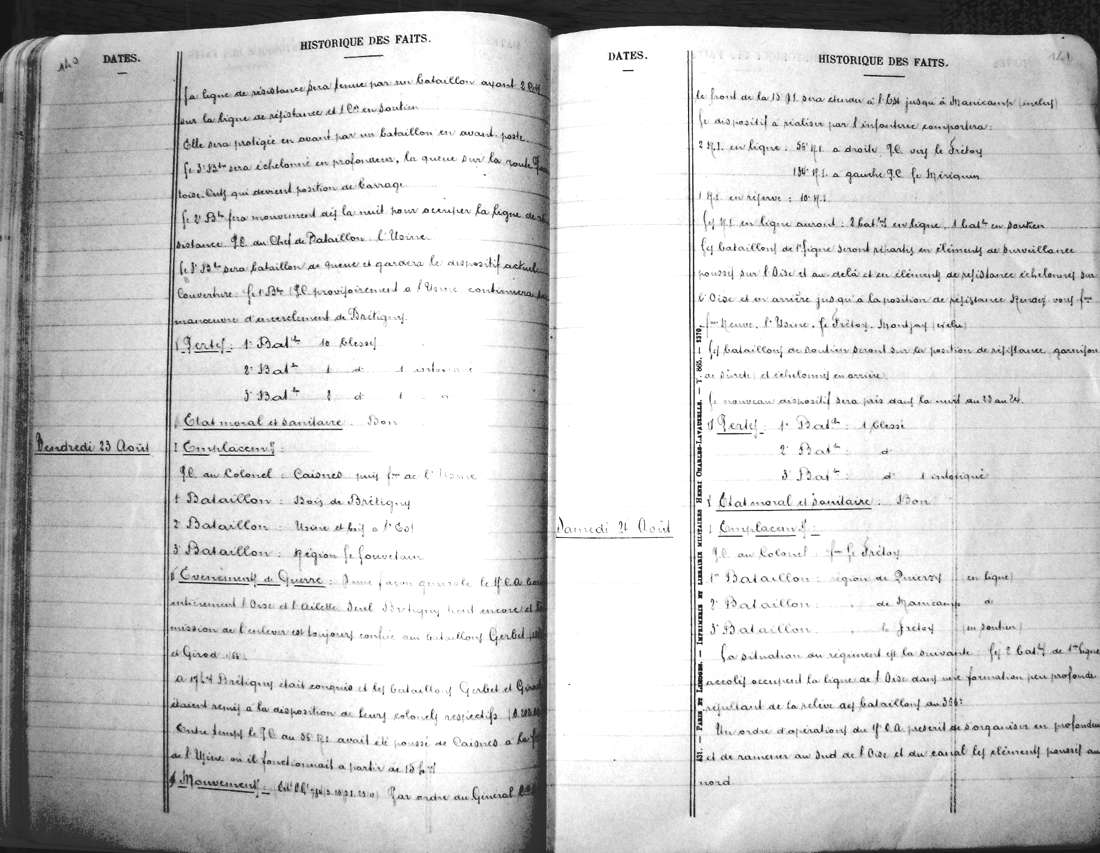 140
DATES.
HISTORIQUE DES FAITS.
La ligne de résistance sera tenue par un bataillon ayant 2 Cies
sur la ligne de résistance et 1 Cie en soutien
Elle sera protégée en avant par un bataillon en avant-poste
Le 3e Bon sera échelonné en profondeur, la queue sur la route
qui devient position de barrage
Le 2e Bon fera mouvement dès la nuit pour occuper la ligne de ré
sistance. P.C. du Chef de Bataillon : l'Usine.
Le 3e Bon sera bataillon de queue et gardera le dispositif actuel
Couverture. Le 1er Bon (P.C. provisoirement à l'Usine continuera
manœuvre d'encerclement de Brétigny.
Pertes : 1er Baton 10 blessés
2e Baton 1 do 1 intoxiqué
3e Baton 2 do 1 "
Etat moral et sanitaire : Bon
Vendredi 23 Août
I Emplacemts :
P.C. du Colonel : Caisnes puis fme de l'Usine
1er Bataillon : Bois de Brétigny
2e Bataillon : Usine et à l'Est
3e Bataillon : Région
Evénements de Guerre : D'une façon générale le C.A.
entièrement l'Oise et l'Ailette. Seul Brétigny tient encore et la
mission de l'enlever est toujours confiée aux bataillons Gerbet
et Girod
A 19h Brétigny était conquis et les bataillons Gerbet et Girod
étaient remis à la disposition de leurs colonels respectifs
Entre temps le P.C. du 56e R.I. avait été poussé de Caisnes à la
de l'Usine où il fonctionnait à partir de 15h
Mouvements : Par ordre du Général
DATES.
HISTORIQUE DES FAITS.
141
le front de la 15e D.I. sera étendu à l'Est jusqu'à Manicamp (inclus)
Le dispositif à réaliser par l'infanterie comportera :
2 R.I. en ligne : 56e R.I. à droite P.C. vers le Frétoy
134e R.I. à gauche P.C. Le Mériquin
1 R.I. en réserve : 10e R.I.
Les R.I. en ligne auront : 2 batons en ligne, 1 baton en soutien
Les bataillons de 1ère ligne seront répartis en éléments de surveillance
poussés sur l'Oise et au delà et en éléments de résistance échelonnés sur
l'Oise et en arrière jusqu'à la position de résistance Rendez vous fme
fme Neuve, l'Usine, Le Frétoy, Montjay (exclu)
Les bataillons de soutien seront sur la position de résistance, garnison
de sûreté, et échelonnés en arrière.
Le nouveau dispositif sera pris dans la nuit du 23 au 24.
Pertes : 1er Baton : 1 blessé
2e Baton : do
3e Baton : do 1 intoxiqué
Etat moral et sanitaire : Bon
Samedi 24 Août
I Emplacemts :
P.C. du Colonel : fme Le Frétoy
1er Bataillon : région de Quierzy (en ligne)
2e Bataillon : " de Manicamp do
3e Bataillon " le Frétoy (en soutien)
La situation du régiment est la suivante : Les 2 batons de 1ère ligne
accolés occupent la ligne de l'Oise dans une formation peu profonde
résultant de la relève des bataillons du
Un ordre d'opérations du C.A. prescrit de s'organiser en profondeur
et de ramener au Sud de l'Oise et du canal les éléments poussés au
nord
531. — PARIS ET LIMOGES. — IMPRIMERIE ET LIBRAIRIE MILITAIRES HENRI CHARLES-LAVAUZELLE. — T. 865.